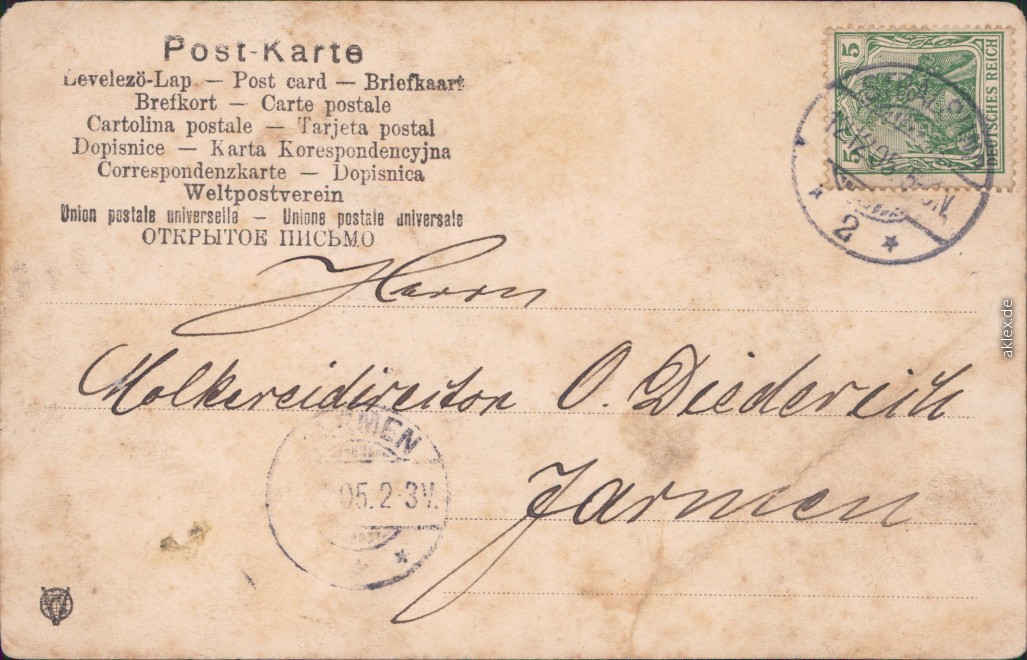 Post-Karte
Levelezö-Lap — Post card — Briefkaart
Brefkort — Carte postale
Cartolina postale — Tarjeta postal
Dopisnice — Karta Korespondencyjna
Correspondenzkarte — Dopisnica
Weltpostverein
Union postale universelle — Unione postale universale
ОТКРЫТОЕ ПИСЬМО
5
5
DEUTSCHES REICH
2
Herrn
Molkereidirektor O. Diederich
Jarmen
05.2-3V.
aklex.de